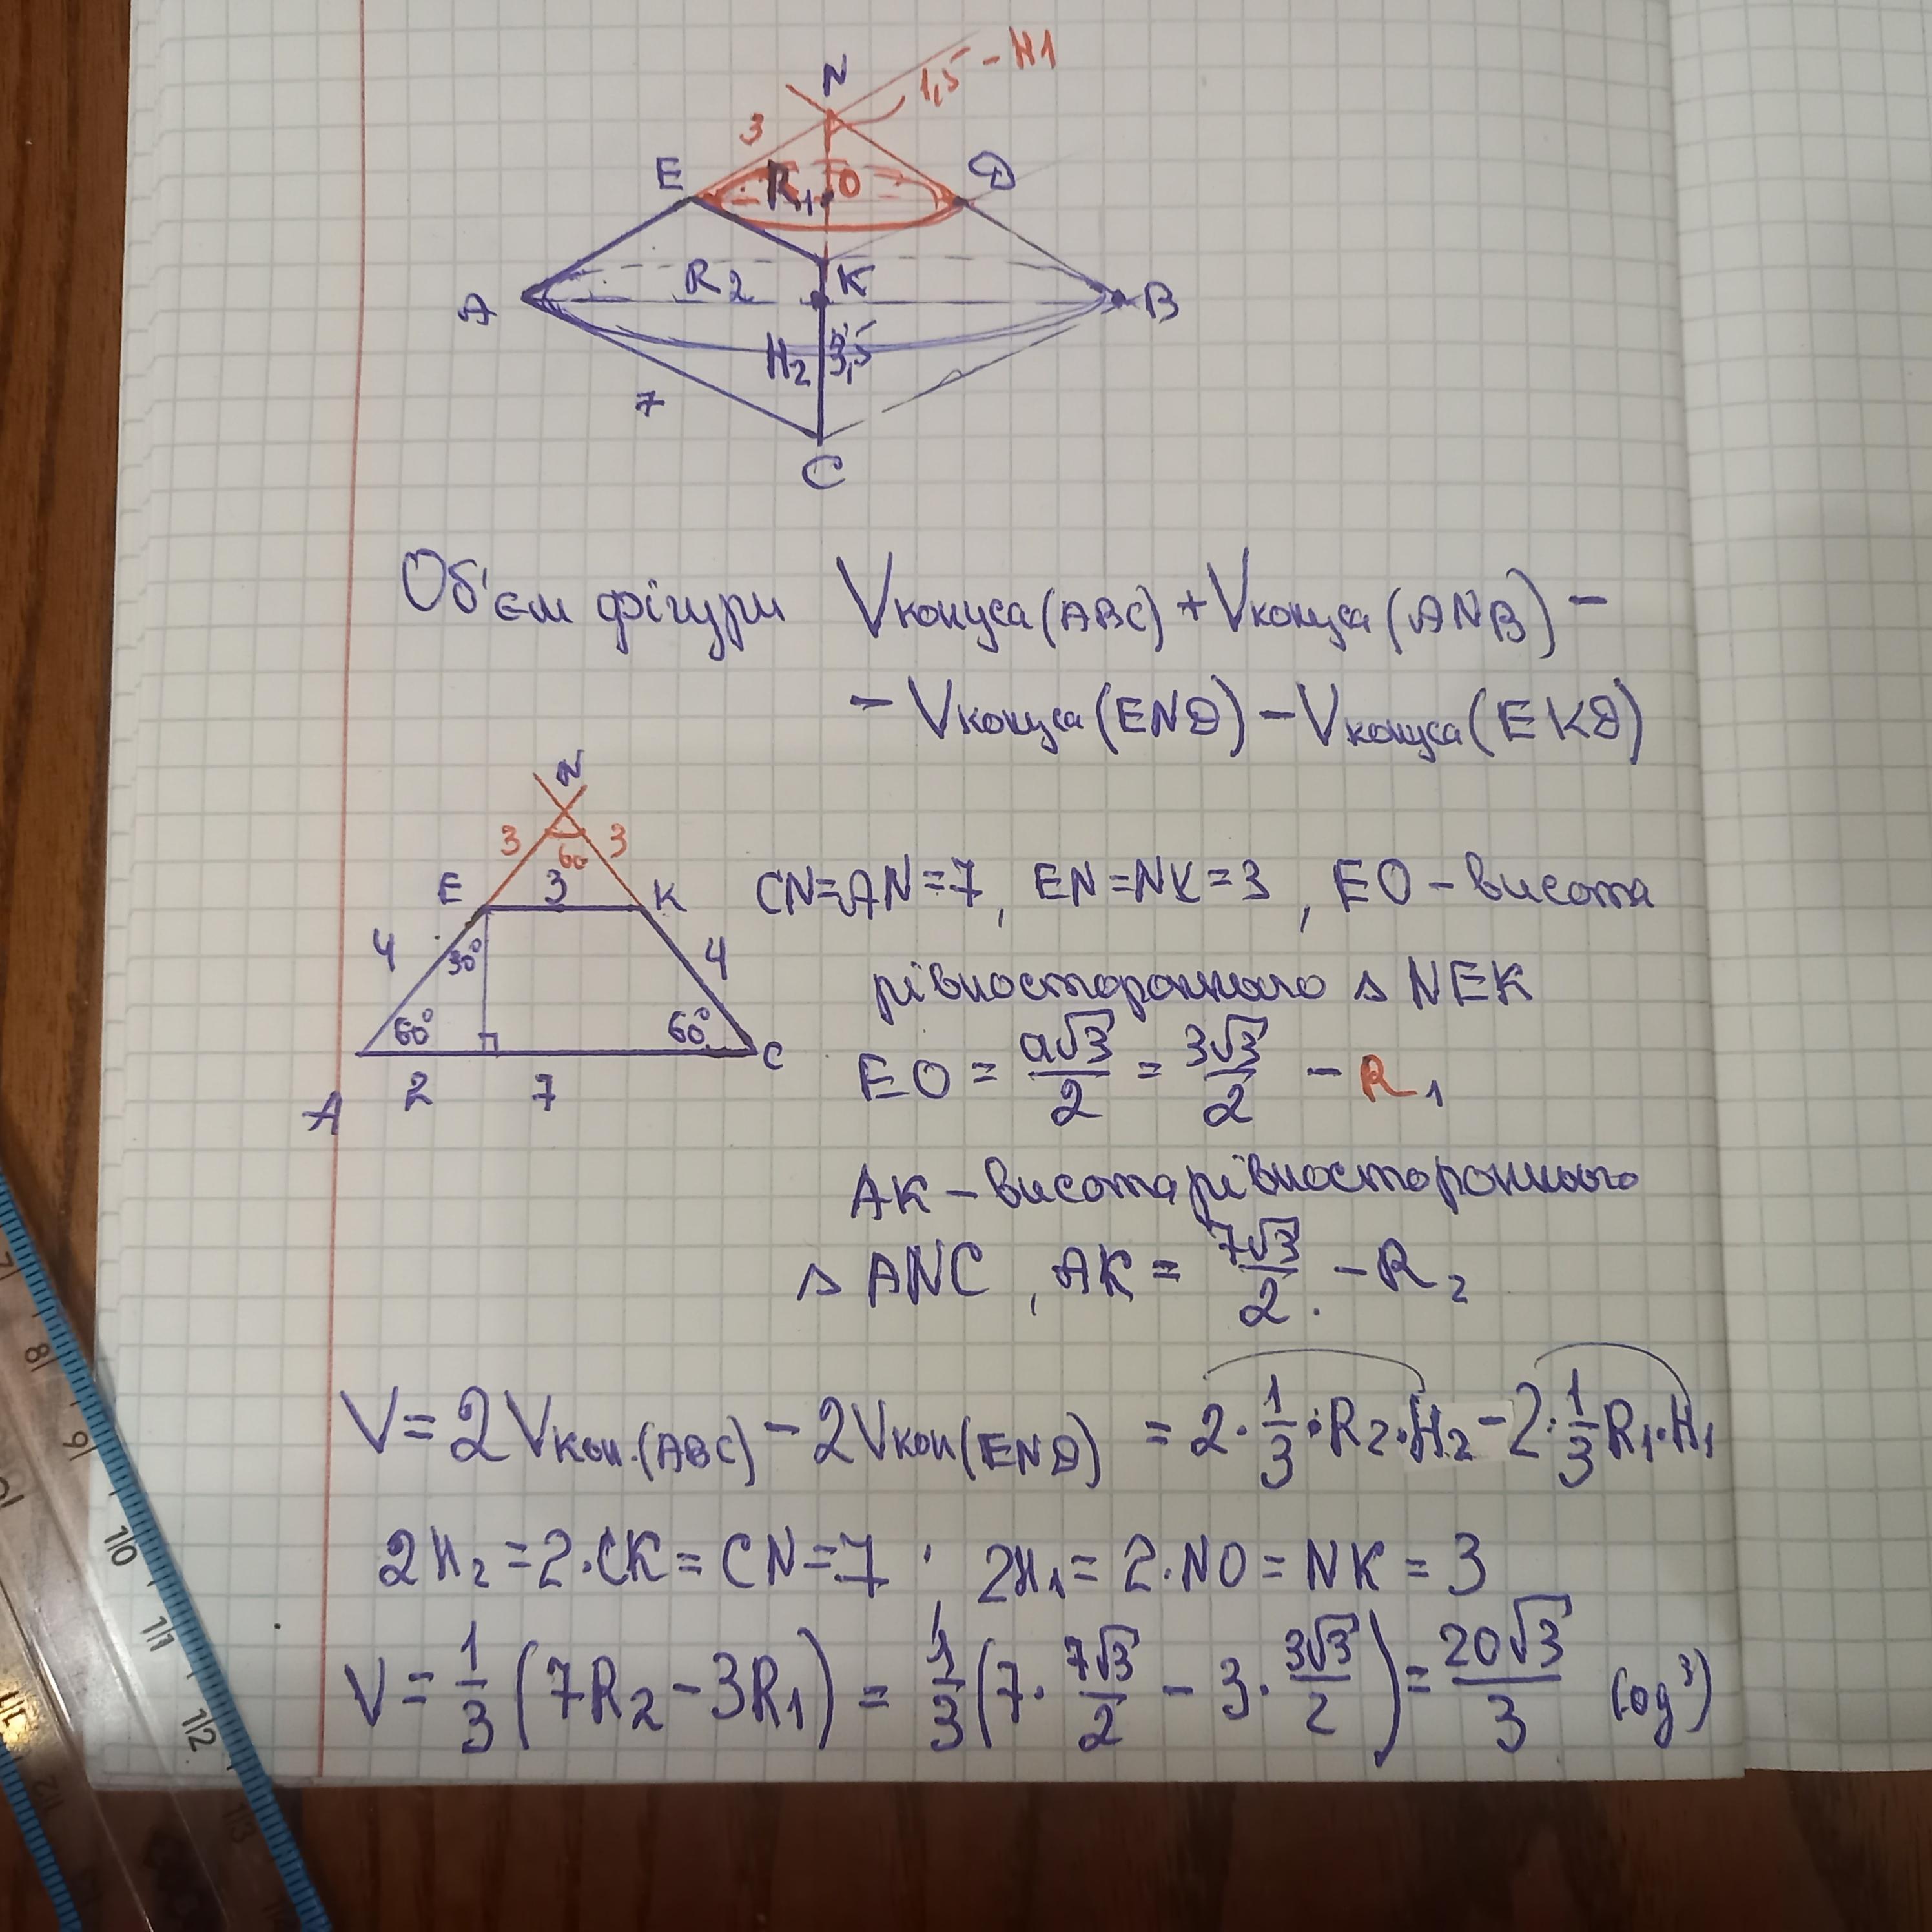 N
1,5 - H1
3
E R1 O D
A R2 K B
H2 3,5
7
C
Об'єм фігури Vконуса(ABC) + Vконуса(ANB) -
- Vконуса(END) - Vконуса(EKD)
N
3 60 3
E 3 K
CN=AN=7, EN=NK=3, EO - висота
4 30° 4
рівностороннього Δ NEK
60° 60°
A 2 7 C
EO = a√3/2 = 3√3/2 - R1
AK - висота рівностороннього
Δ ANC, AK = 7√3/2. - R2
V = 2Vкон.(ABC) - 2Vкон(END) = 2·1/3·R2·H2 - 2·1/3R1·H1
2H2 = 2·CK = CN = 7; 2H1 = 2·NO = NK = 3
V = 1/3(7R2 - 3R1) = 1/3(7·7√3/2 - 3·3√3/2) = 20√3/3 (од³)
7 8 9 10 11 12 13